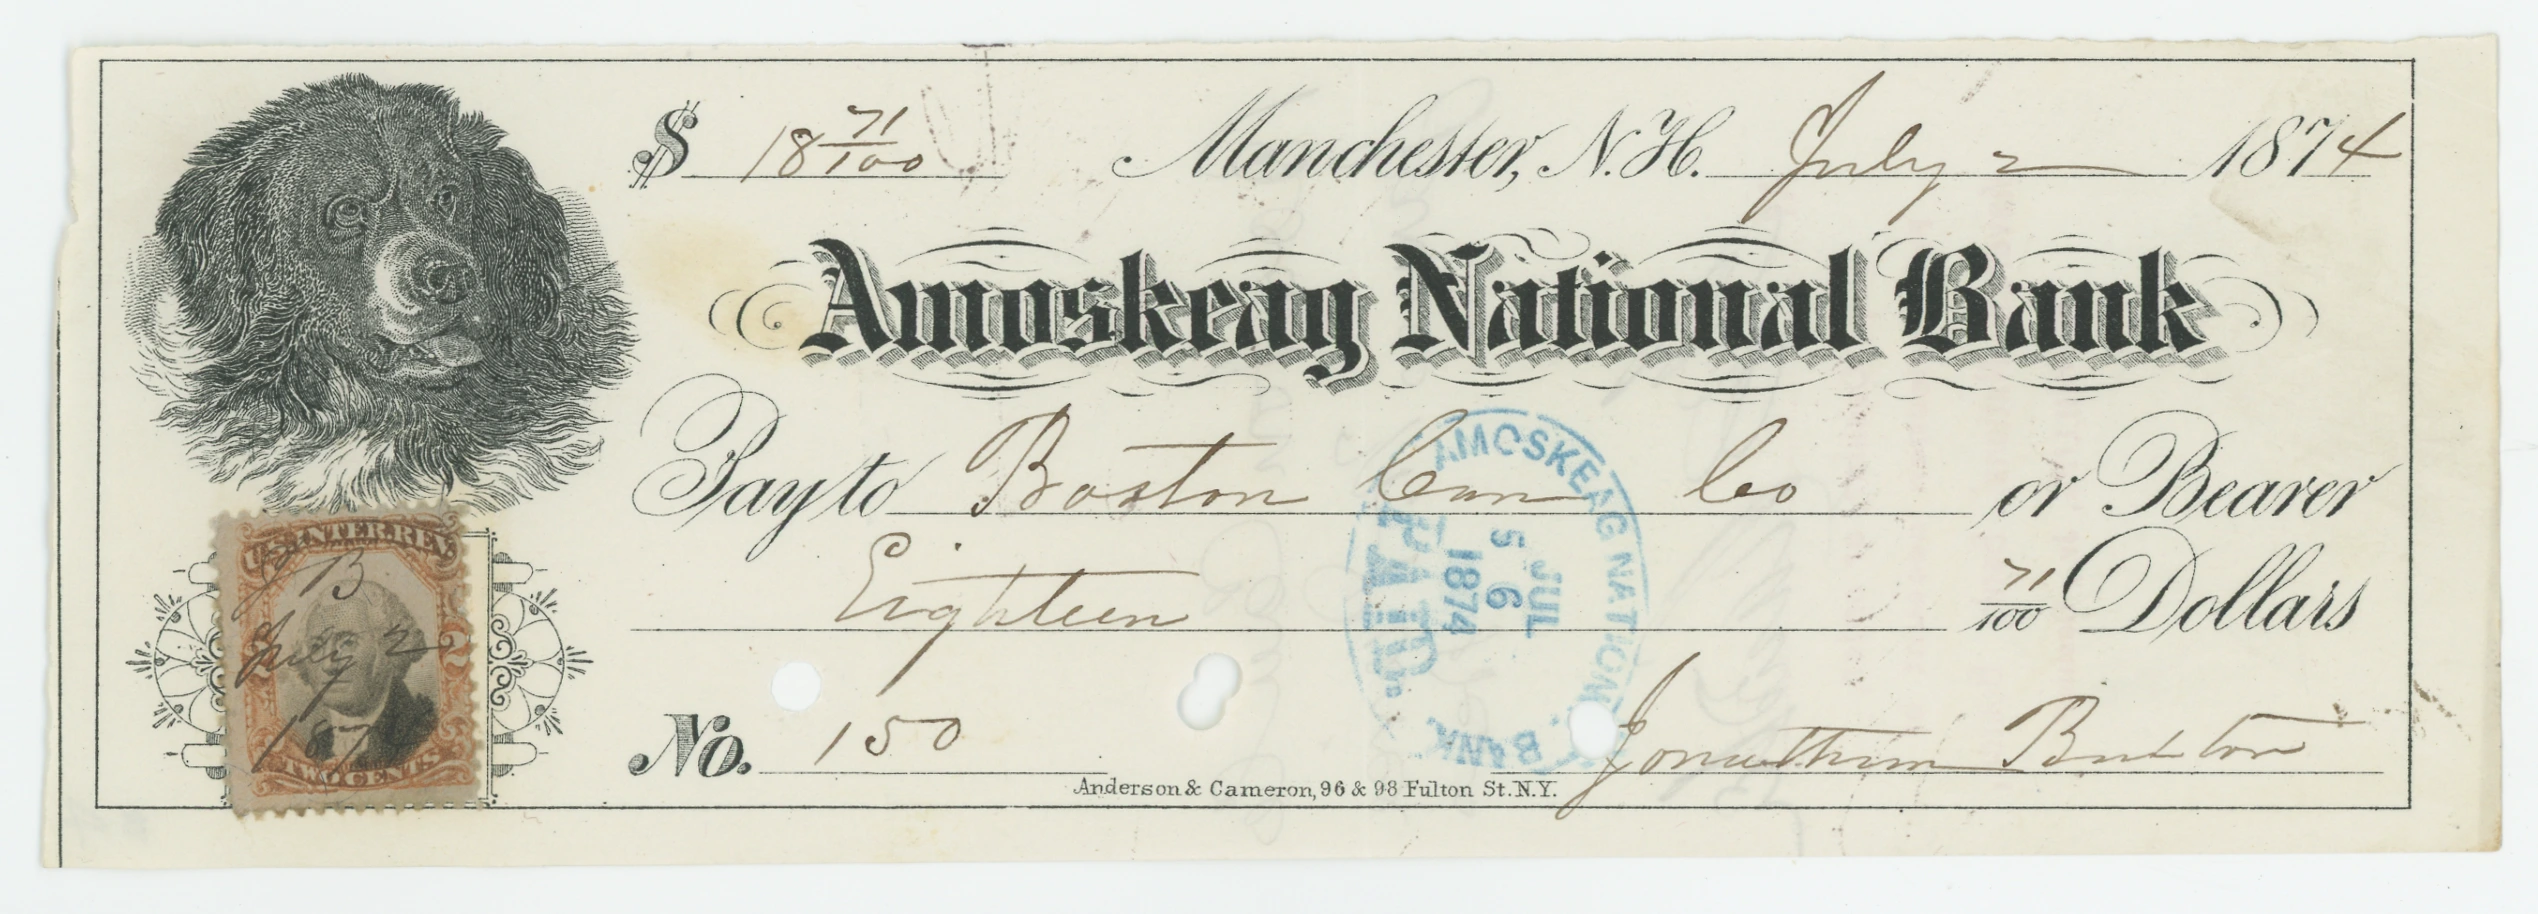 $ 18 71/100 Manchester, N.H. July 2 1874
Amoskeag National Bank
Pay to Boston Can Co or Bearer
Eighteen 71/100 Dollars
No. 150
Anderson & Cameron, 96 & 98 Fulton St. N.Y.
U.S. INTER. REV.
JB
July 2
1874
2
TWO CENTS
AMOSKEAG NATIONAL BANK.
JUL
5 6
1874
PAID